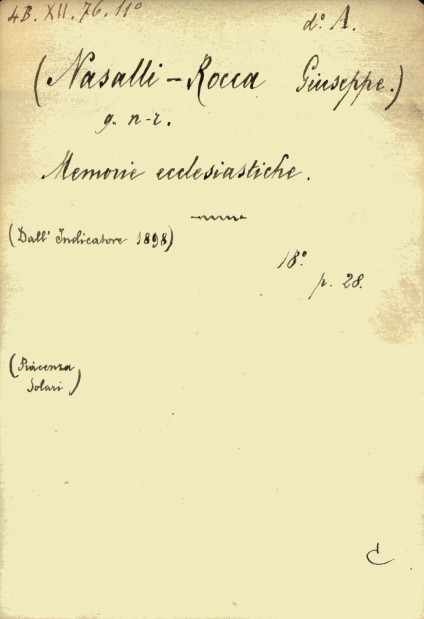 4B. XII. 76. 11°
d° A.
(Nasalli-Rocca Giuseppe.)
g. n-r.
Memorie ecclesiastiche.
(Dall' Indicatore 1898)
18°
p. 28.
(Piacenza
Solari)
C